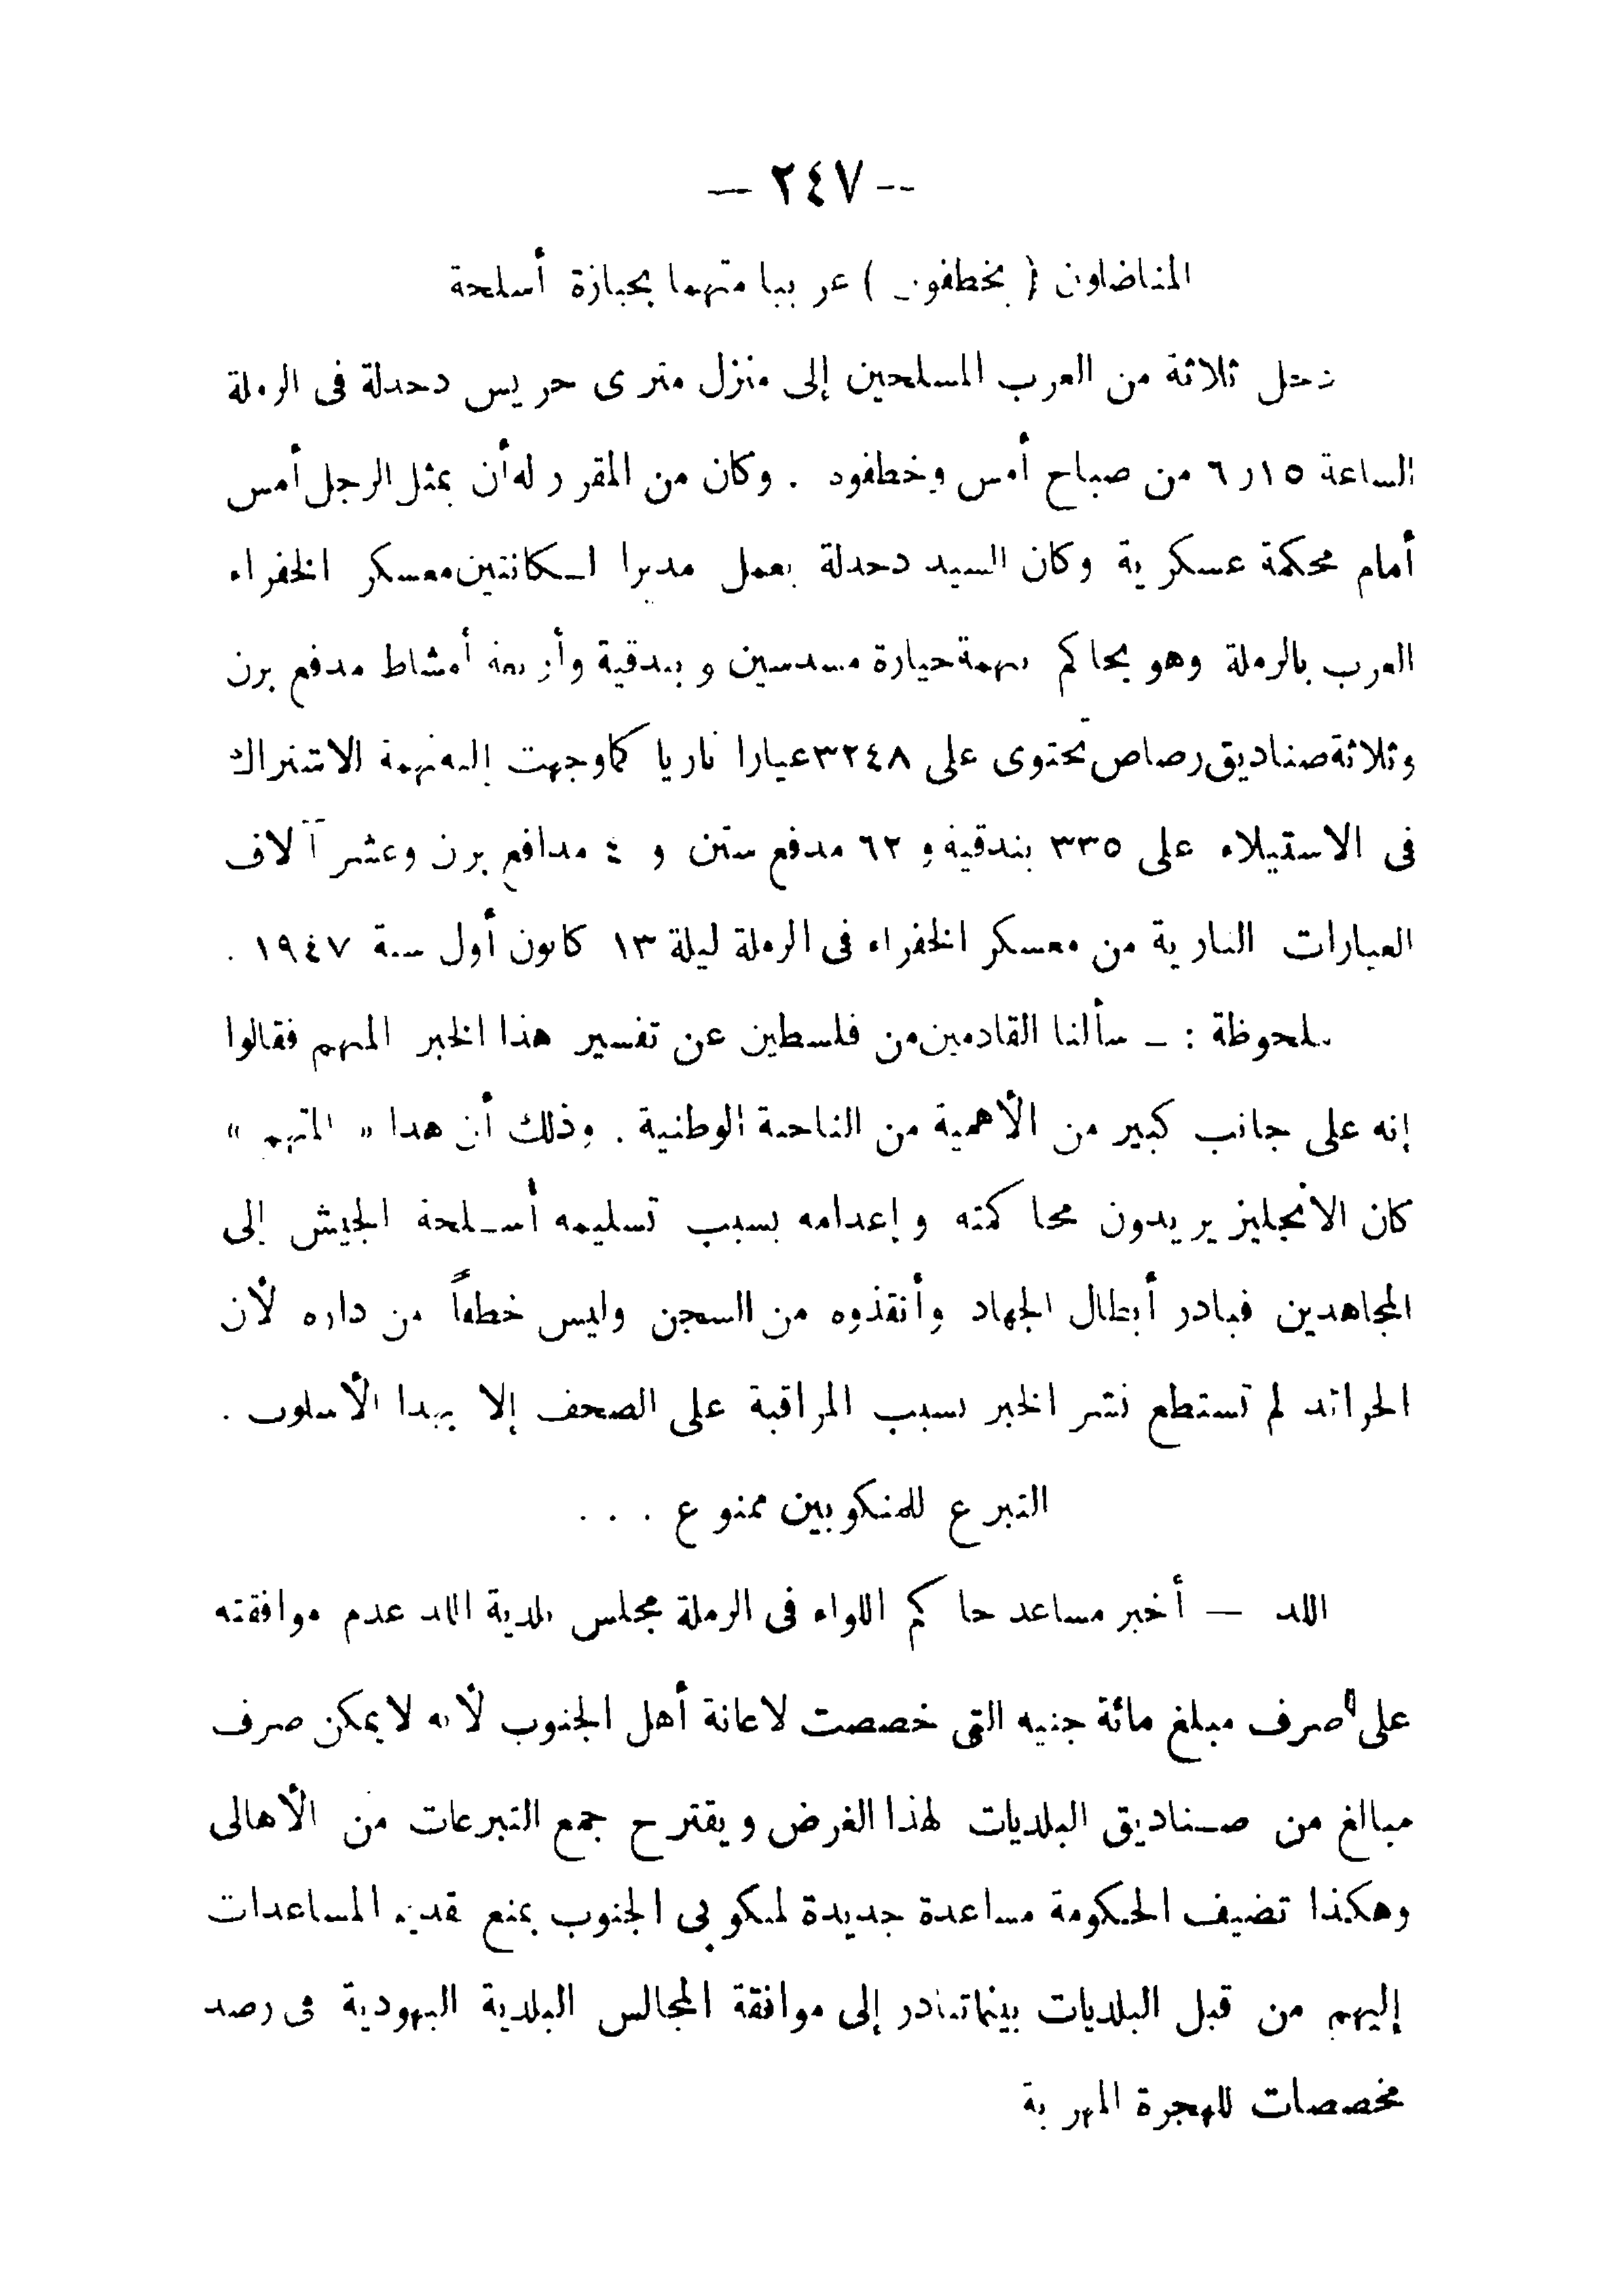 — ٢٤٧ —
المناضلون ( يخطفون ) عربيا متهما بحيازة أسلحة
دخل ثلاثة من العرب المسلحين إلى منزل مترى حريس دحدلة فى الرملة
الساعة ١٥ر٦ من صباح أمس وخطفوه . وكان من المقرر له أن يمثل الرجل أمس
أمام محكمة عسكرية وكان السيد دحدلة يعمل مديرا لكانتين معسكر الخفراء
العرب بالرملة وهو يحاكم بتهمة حيازة مسدسين وبندقية وأربعة أمشاط مدفع برن
وثلاثة صناديق رصاص تحتوى على ٣٢٤٨ عيارا ناريا كما وجهت إليه تهمة الاشتراك
فى الاستيلاء على ٣٣٥ بندقية و ٦٢ مدفع ستن و ٤ مدافع برن وعشر آلاف
العيارات النارية من معسكر الخفراء فى الرملة ليلة ١٣ كانون أول سنة ١٩٤٧ .
ملحوظة : ــ سألنا القادمين من فلسطين عن تفسير هذا الخبر المبهم فقالوا
إنه على جانب كبير من الأهمية من الناحية الوطنية . وذلك أن هذا « المتهم »
كان الانجليز يريدون محاكمته وإعدامه بسبب تسليمه أسلحة الجيش إلى
المجاهدين فبادر أبطال الجهاد وأنقذوه من السجن وليس خطفاً من داره لأن
الجرائد لم تستطع نشر الخبر بسبب المراقبة على الصحف إلا بهذا الأسلوب .
التبرع للمنكوبين ممنوع . . .
اللد — أخبر مساعد حاكم اللواء فى الرملة مجلس بلدية اللد عدم موافقته
على صرف مبلغ مائة جنيه التى خصصت لاعانة أهل الجنوب لأنه لا يمكن صرف
مبالغ من صناديق البلديات لهذا الغرض ويقترح جمع التبرعات من الأهالى
وهكذا تضيف الحكومة مساعدة جديدة لمنكوبى الجنوب بمنع تقديم المساعدات
إليهم من قبل البلديات بينما تبادر إلى موافقة المجالس البلدية اليهودية فى رصد
مخصصات للهجرة المهربة